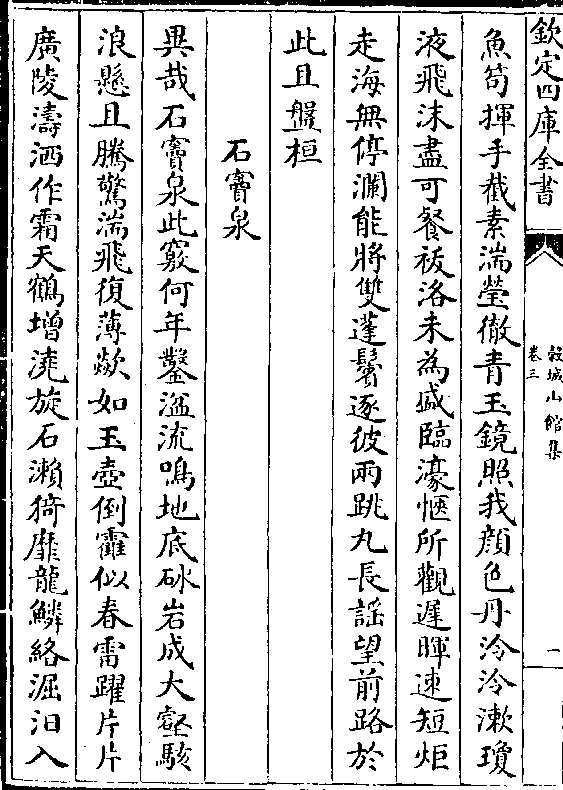 欽定四庫全書
穀城山館集
卷三
一
魚笱揮手截素湍瑩徹青玉鏡照我顔色丹泠泠漱瓊
液飛沫盡可餐祓洛未為盛臨濠愜所觀遲暉速短炬
走海無停瀾能將雙蓬鬢逐彼兩跳丸長謡望前路於
此且盤桓
石竇泉
異哉石竇泉此竅何年鑿湓流鳴地底砯岩成大壑駭
浪懸且騰驚湍飛復薄歘如玉壺倒霍似春雷躍片片
廣陵濤洒作霜天鶴增澆旋石瀨猗靡龍鱗絡淈汩入